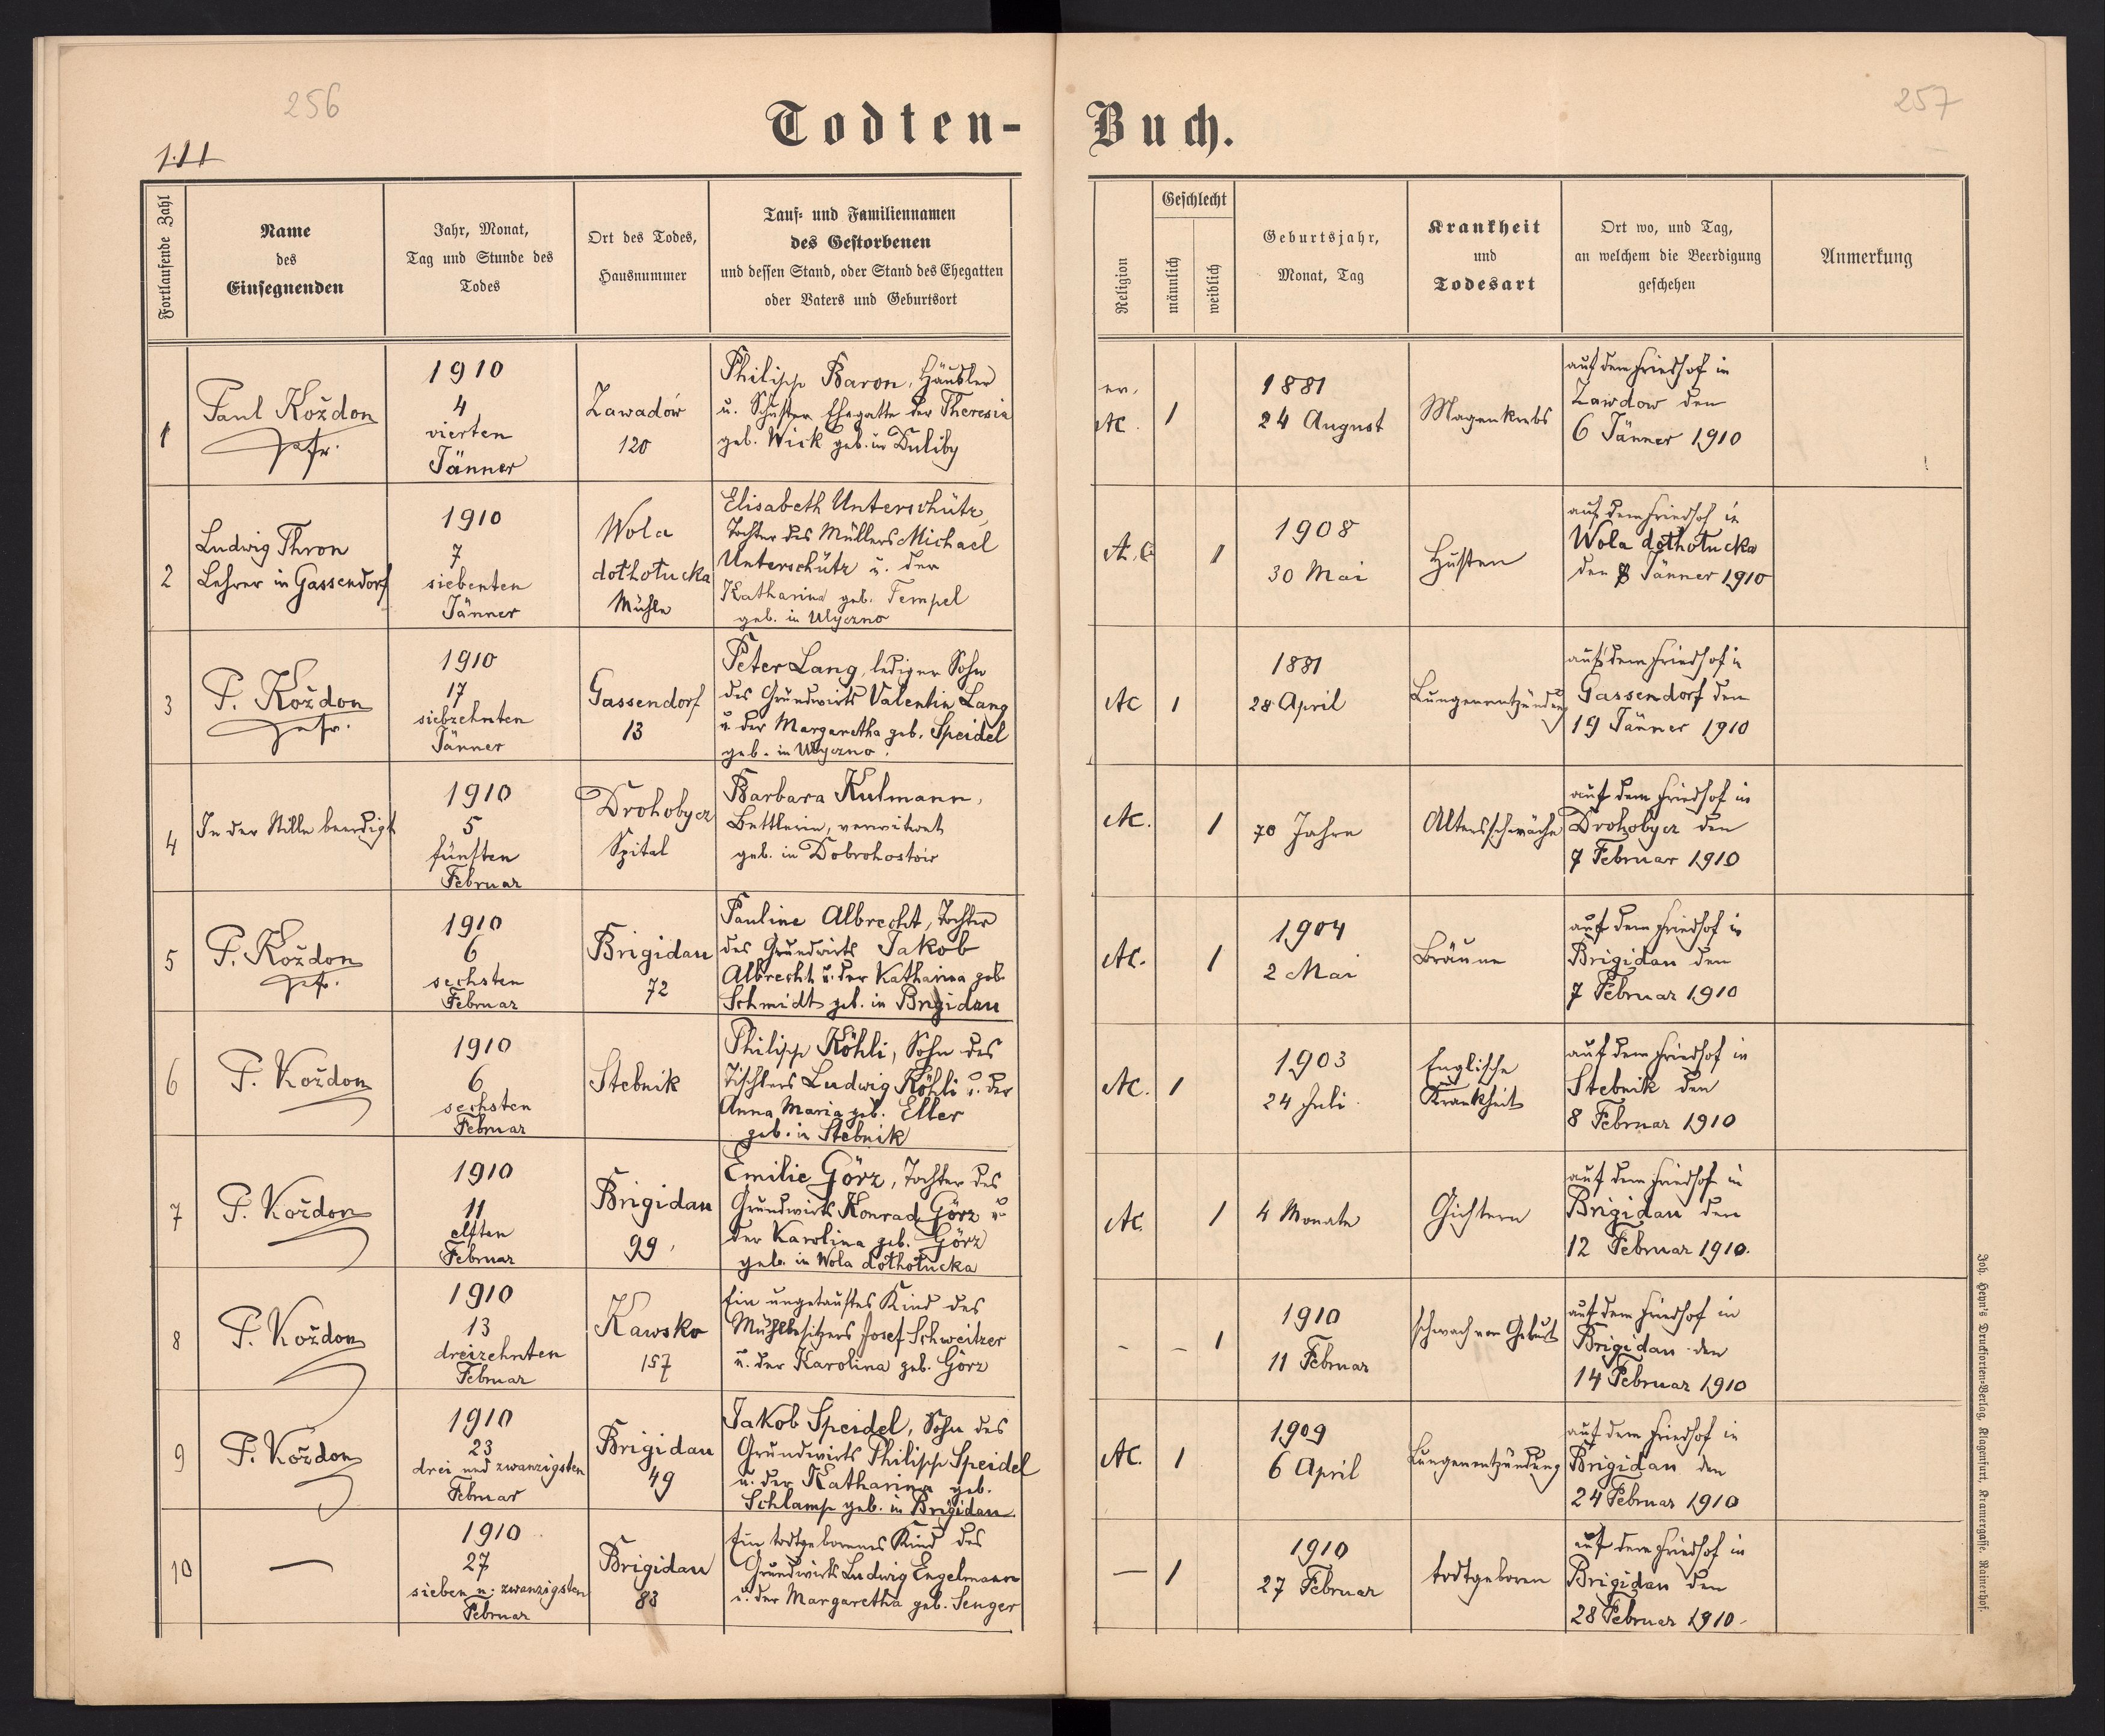 256
257
111
Todten-Buch.
Fortlaufende Zahl
Name
des
Einsegnenden
Jahr, Monat,
Tag und Stunde des
Todes
Ort des Todes,
Hausnummer
Tauf- und Familiennamen
des Gestorbenen
und dessen Stand, oder Stand des Ehegatten
oder Vaters und Geburtsort
Religion
Geschlecht
männlich
weiblich
Geburtsjahr,
Monat, Tag
Krankheit
und
Todesart
Ort wo, und Tag,
an welchem die Beerdigung
geschehen
Anmerkung
1
Paul Koždon
Pfr.
1910
4
vierten
Jänner
Zawadów
120
Philipp Baron, Häusler
u. Schuster Ehegatte der Theresia
geb. Wick geb. in Duliby
ev.
AC.
1
1881
24 August
Magenkrebs
auf dem Friedhof in
Zawdow den
6 Jänner 1910
2
Ludwig Thron
Lehrer in Gassendorf
1910
7
siebenten
Jänner
Wola
dothotucka
Mühle
Elisabeth Unterschütz,
Tochter des Müllers Michael
Unterschütz u. der
Katharina geb. Tempel
geb. in Ulyczno
A.C
1
1908
30 Mai
Husten
auf dem Friedhof in
Wola dothotucka
den 8 Jänner 1910
3
P. Koždon
Pfr.
1910
17
siebzehnten
Jänner
Gassendorf
13
Peter Lang, lediger Sohn
des Grundwirts Valentin Lang
u. der Margaretha geb. Speidel
geb. in Ulyczno.
AC
1
1881
28 April
Lungenentzündung
auf dem Friedhof in
Gassendorf den
19 Jänner 1910
4
In der Stille beerdigt
1910
5
fünften
Februar
Drohobycz
Spital
Barbara Kulmann,
Bettlerin, verwitwet
geb. in Dobrohostów
AC.
1
70 Jahre
Altersschwäche
auf dem Friedhof in
Drohobycz den
7 Februar 1910
5
P. Koždon
Pfr.
1910
6
sechsten
Februar
Brigidau
72
Pauline Albrecht, Tochter
des Grundwirts Jakob
Albrecht u. der Katharina geb.
Schmidt geb. in Brigidau
AC.
1
1904
2 Mai
Bräune
auf dem Friedhof in
Brigidau den
7 Februar 1910
6
P. Koždon
1910
6
sechsten
Februar
Stebnik
Philipp Köhli, Sohn des
Tischlers Ludwig Köhli u. der
Anna Maria geb. Eller
geb. in Stebnik
AC.
1
1903
24 Juli
Englische
Krankheit
auf dem Friedhof in
Stebnik den
8 Februar 1910
7
P. Koždon
1910
11
elften
Februar
Brigidau
99
Emilie Görz, Tochter des
Grundwirts Konrad Görz u.
der Karolina geb. Görz
geb. in Wola dothotucka
AC.
1
4 Monate
Gichtern
auf dem Friedhof in
Brigidau den
12 Februar 1910.
8
P. Koždon
1910
13
dreizehnten
Februar
Kawsko
157
Ein ungetauftes Kind des
Mühlbesitzers Josef Schweitzer
u. der Karolina geb. Görz
-
-
1
1910
11 Februar
schwach von Geburt
auf dem Friedhof in
Brigidau den
14 Februar 1910
9
P. Koždon
1910
23
drei und zwanzigsten
Februar
Brigidau
49
Jakob Speidel, Sohn des
Grundwirts Philipp Speidel
u. der Katharina geb.
Schlamp geb. in Brigidau.
AC.
1
1909
6 April
Lungenentzündung
auf dem Friedhof in
Brigidau den
24 Februar 1910
10
—
1910
27
sieben u. zwanzigsten
Februar
Brigidau
88
Ein todtgeborenes Kind des
Grundwirts Ludwig Engelmann
u. der Margaretha geb. Senger
—
1
1910
27 Februar
todtgeboren
auf dem Friedhof in
Brigidau den
28 Februar 1910.
Joh. Heyn's Drucksorten-Verlag, Klagenfurt, Kramergasse, Rainerhof.